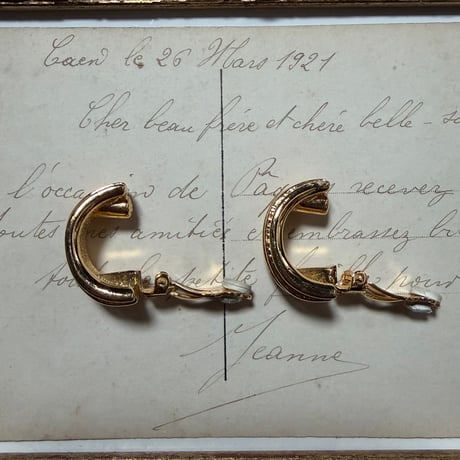 Caen le 26 Mars 1921
Cher beau frère et chère belle-
l'occasion de Pâques recevez
toutes mes amitiés embrassez
toute petite pour
Jeanne